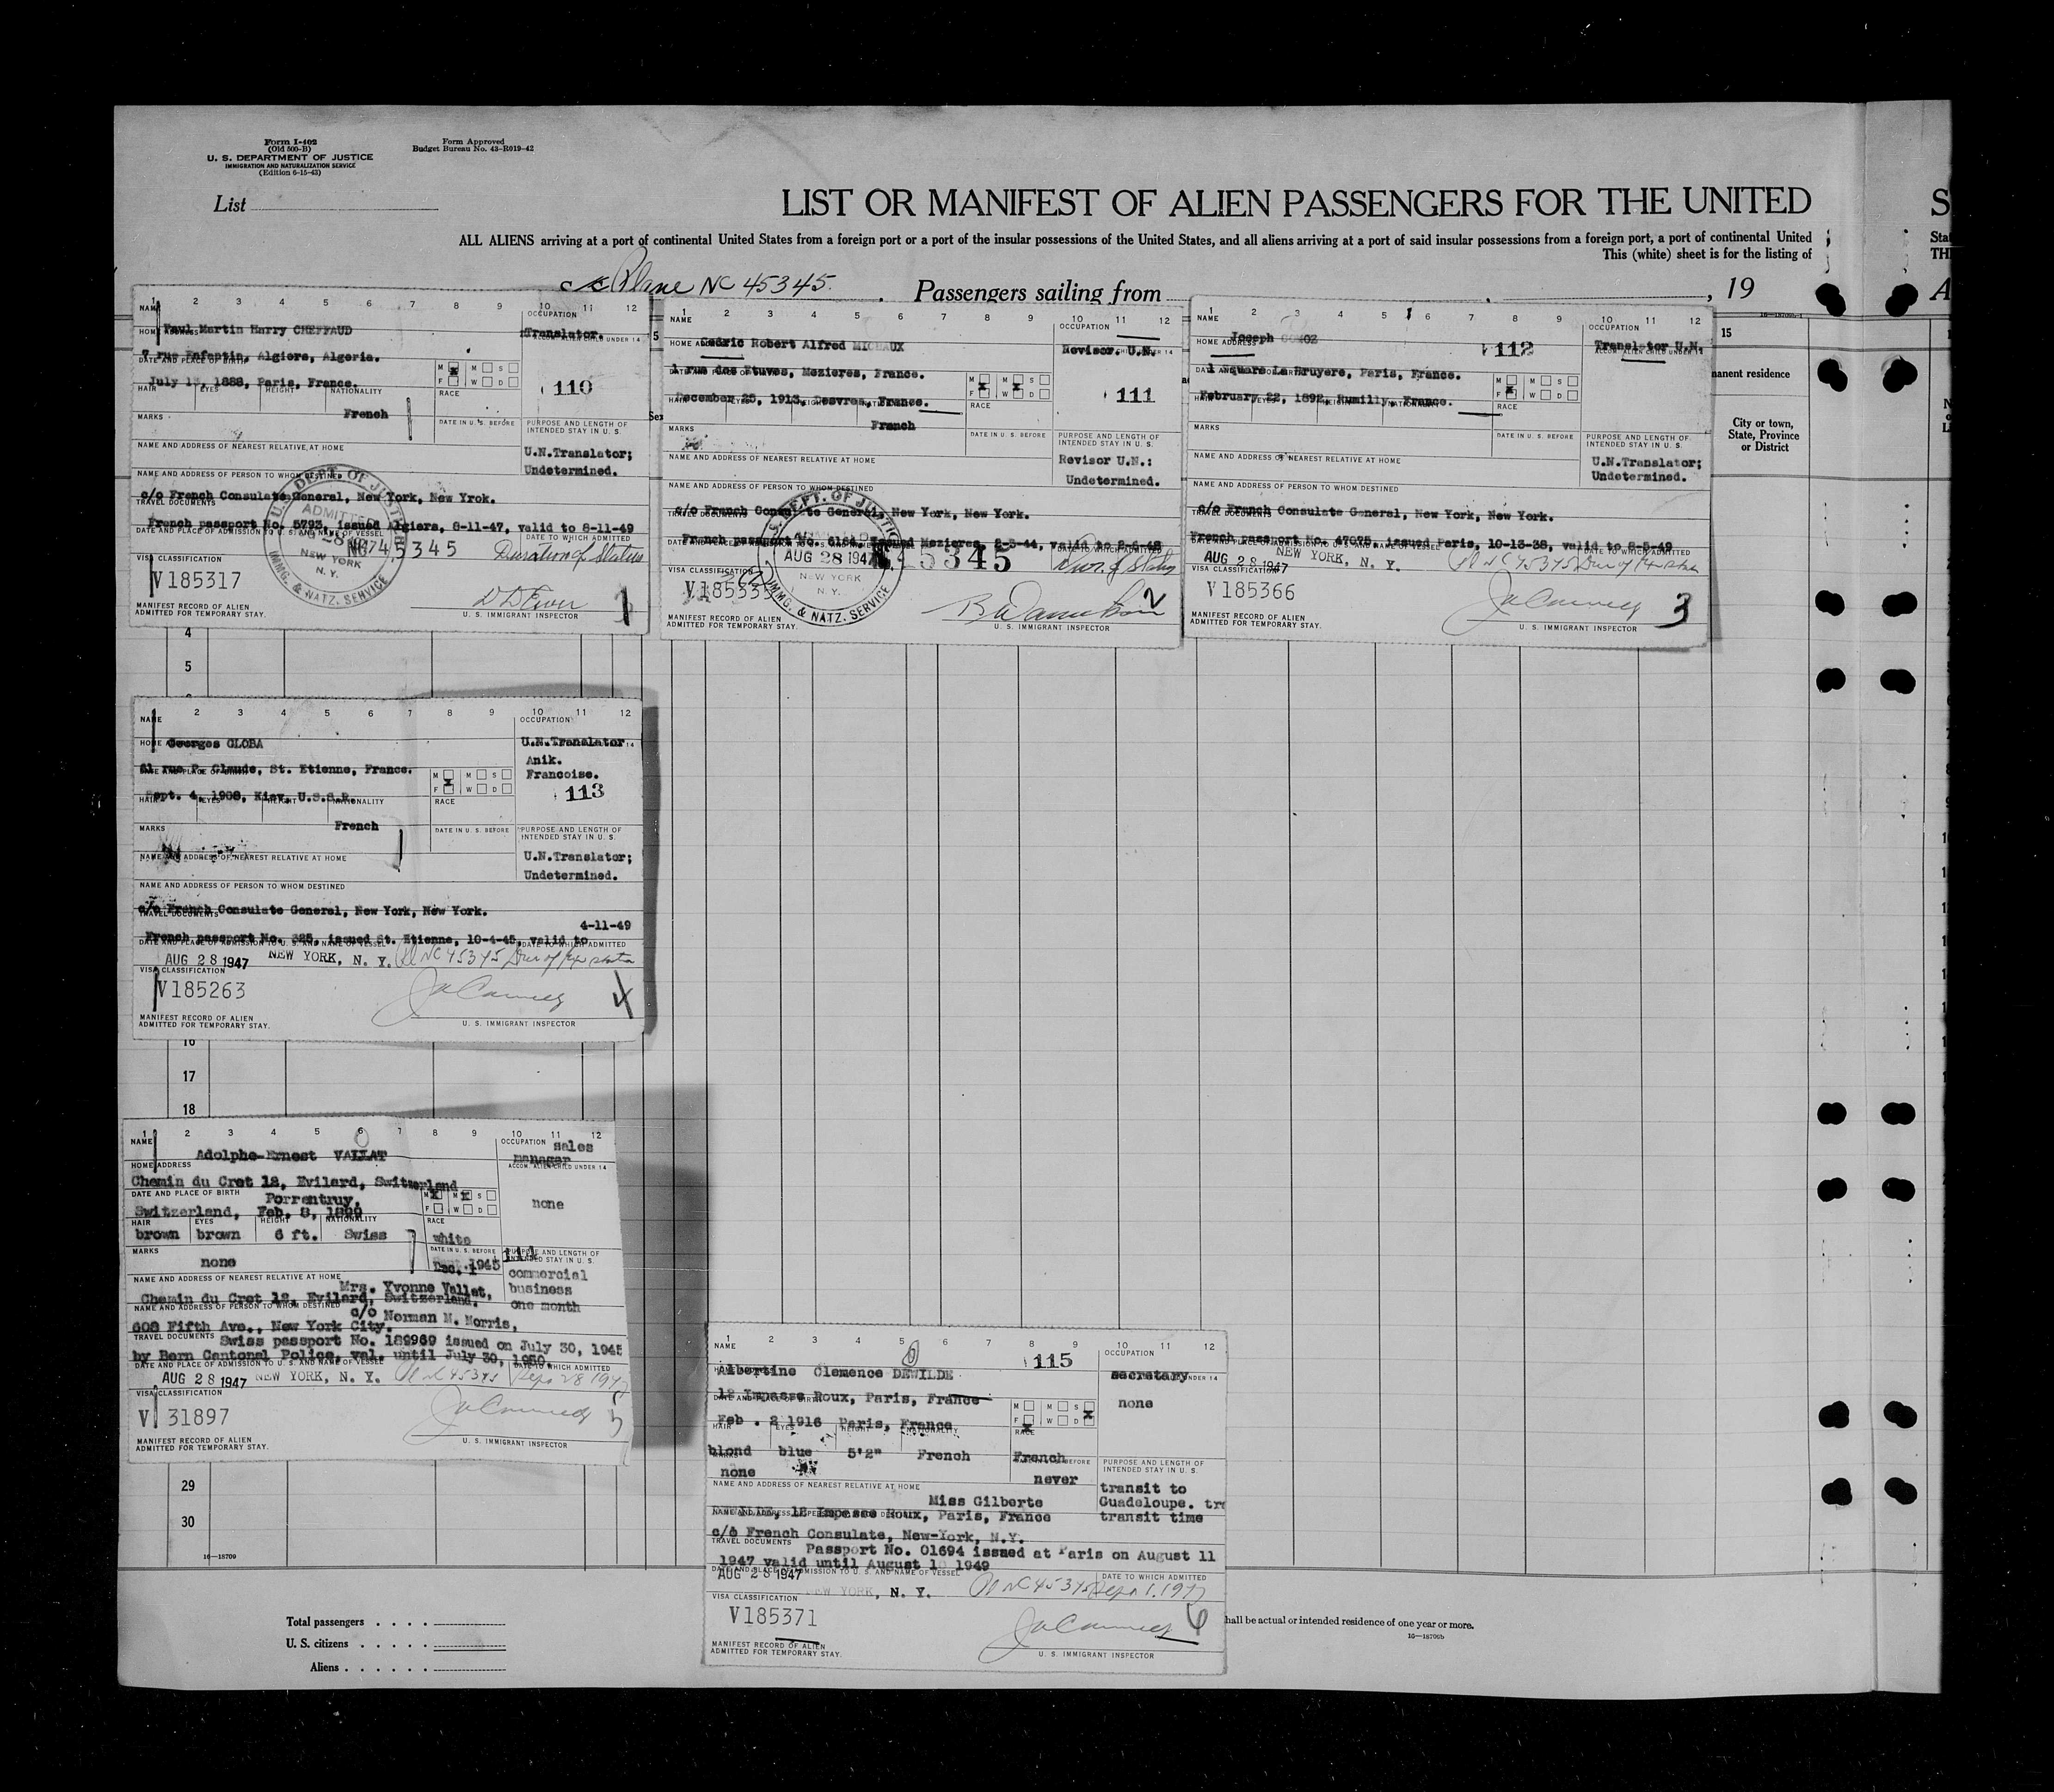 Form I-402
(Old 500-B)
U. S. DEPARTMENT OF JUSTICE
IMMIGRATION AND NATURALIZATION SERVICE
(Edition 6-15-43)
Form Approved
Budget Bureau No. 43-R019-42
List
LIST OR MANIFEST OF ALIEN PASSENGERS FOR THE UNITED
ALL ALIENS arriving at a port of continental United States from a foreign port or a port of the insular possessions of the United States, and all aliens arriving at a port of said insular possessions from a foreign port, a port of continental United
This (white) sheet is for the listing of
Plane NC 45345. Passengers sailing from , 19
1 2 3 4 5 6 7 8 9 10 11 12
NAME
OCCUPATION
Paul Martin Harry CHEFFAUD
Translator.
HOME ADDRESS
7 rue Enfantin, Algiers, Algeria.
DATE AND PLACE OF BIRTH
July 13, 1888, Paris, France.
M M S
F W D
110
HAIR EYES HEIGHT NATIONALITY RACE
French
MARKS DATE IN U. S. BEFORE PURPOSE AND LENGTH OF INTENDED STAY IN U. S.
NAME AND ADDRESS OF NEAREST RELATIVE AT HOME
U.N.Translator;
Undetermined.
NAME AND ADDRESS OF PERSON TO WHOM DESTINED
c/o French Consulate General, New York, New Yrok.
TRAVEL DOCUMENTS
French passport No. 5793, issued Algiers, 8-11-47, valid to 8-11-49
DATE AND PLACE OF ADMISSION TO U. S. AND NAME OF VESSEL DATE TO WHICH ADMITTED
U. S. DEPT. OF JUSTICE
ADMITTED
NEW YORK
N. Y.
IMMG. & NATZ. SERVICE
45345 Duration of Status
VISA CLASSIFICATION
V185317
MANIFEST RECORD OF ALIEN
ADMITTED FOR TEMPORARY STAY.
U. S. IMMIGRANT INSPECTOR
1
1 2 3 4 5 6 7 8 9 10 11 12
NAME
OCCUPATION
Cedric Robert Alfred MICHAUX
HOME ADDRESS
Revisor. U.N.
1 rue des Etuves, Mezieres, France.
M M S
F W D
December 25, 1913, Desvres, France.
111
RACE
French
MARKS DATE IN U. S. BEFORE PURPOSE AND LENGTH OF INTENDED STAY IN U. S.
NAME AND ADDRESS OF NEAREST RELATIVE AT HOME
Revisor U.N.:
Undetermined.
NAME AND ADDRESS OF PERSON TO WHOM DESTINED
c/o French Consulate General, New York, New York.
TRAVEL DOCUMENTS
French passport No. issued Mezieres,
DEPT. OF JUSTICE
AUG 28 1947
NEW YORK
N. Y.
IMMG. & NATZ. SERVICE
45345
VISA CLASSIFICATION
MANIFEST RECORD OF ALIEN
ADMITTED FOR TEMPORARY STAY.
U. S. IMMIGRANT INSPECTOR
2
1 2 3 4 5 6 7 8 9 10 11 12
NAME
OCCUPATION
Joseph
HOME ADDRESS
112
Translator U.N.
1 square La Bruyere, Paris, France.
M M S
F W D
February 22, 1892, Rumilly, France.
RACE
MARKS DATE IN U. S. BEFORE PURPOSE AND LENGTH OF INTENDED STAY IN U. S.
NAME AND ADDRESS OF NEAREST RELATIVE AT HOME
U.N.Translator;
Undetermined.
NAME AND ADDRESS OF PERSON TO WHOM DESTINED
c/o French Consulate General, New York, New York.
TRAVEL DOCUMENTS
French passport No. 47075, issued Paris, 10-13-38, valid to 8-5-49
AUG 28 1947 NEW YORK, N. Y. Pl NC 45345
VISA CLASSIFICATION
V185366
MANIFEST RECORD OF ALIEN
ADMITTED FOR TEMPORARY STAY.
U. S. IMMIGRANT INSPECTOR
3
15
manent residence
City or town,
State, Province
or District
4
5
1 2 3 4 5 6 7 8 9 10 11 12
NAME
OCCUPATION
Georges GLOBA
U.N.Translator
Anik.
Francoise.
61 rue P. Claude, St. Etienne, France.
M M S
F W D
113
Sept. 4, 1908, Kiev, U.S.S.R.
HAIR EYES HEIGHT NATIONALITY RACE
French
MARKS DATE IN U. S. BEFORE PURPOSE AND LENGTH OF INTENDED STAY IN U. S.
NAME AND ADDRESS OF NEAREST RELATIVE AT HOME
U.N.Translator;
Undetermined.
NAME AND ADDRESS OF PERSON TO WHOM DESTINED
c/o French Consulate General, New York, New York.
TRAVEL DOCUMENTS
4-11-49
French passport No. 325, issued St. Etienne, 10-4-45, valid to
DATE AND PLACE OF ADMISSION TO U. S. AND NAME OF VESSEL DATE TO WHICH ADMITTED
AUG 28 1947 NEW YORK, N. Y. Pl NC 45345
VISA CLASSIFICATION
V185263
MANIFEST RECORD OF ALIEN
ADMITTED FOR TEMPORARY STAY.
U. S. IMMIGRANT INSPECTOR
4
16
17
18
1 2 3 4 5 6 7 8 9 10 11 12
NAME
OCCUPATION sales
manager
Adolphe-Ernest VALLAT
HOME ADDRESS
ACCOM. ALIEN CHILD UNDER 14
Chemin du Cret 12, Evilard, Switzerland
DATE AND PLACE OF BIRTH Porrentruy,
Switzerland, Feb. 8, 1899
M M S
F W D
none
HAIR EYES HEIGHT NATIONALITY RACE
brown brown 6 ft. Swiss white
MARKS DATE IN U. S. BEFORE PURPOSE AND LENGTH OF INTENDED STAY IN U. S.
114
none
Dec. 1945
commercial
business
one month
NAME AND ADDRESS OF NEAREST RELATIVE AT HOME
Mrs. Yvonne Vallat,
Chemin du Cret 12, Evilard, Switzerland.
NAME AND ADDRESS OF PERSON TO WHOM DESTINED
c/o Norman M. Morris,
608 Fifth Ave., New York City
TRAVEL DOCUMENTS Swiss passport No. 189969 issued on July 30, 1945
by Bern Cantonal Police, val. until July 30, 1950.
DATE AND PLACE OF ADMISSION TO U. S. AND NAME OF VESSEL DATE TO WHICH ADMITTED
AUG 28 1947 NEW YORK, N. Y. Pl NC 45345 Sept 28 1947
VISA CLASSIFICATION
V 31897
MANIFEST RECORD OF ALIEN
ADMITTED FOR TEMPORARY STAY.
U. S. IMMIGRANT INSPECTOR
5
1 2 3 4 5 6 7 8 9 10 11 12
NAME
115
OCCUPATION
Albertine Clemence DEWILDE
secretary
12 Impasse Roux, Paris, France
none
M M S
F W D
Feb . 2 1916 Paris, France
HAIR EYES HEIGHT NATIONALITY RACE
blond blue 5'2" French French
none
never
PURPOSE AND LENGTH OF INTENDED STAY IN U. S.
NAME AND ADDRESS OF NEAREST RELATIVE AT HOME
transit to
Miss Gilberte
Guadeloupe.
12 Impasse Roux, Paris, France
transit time
c/o French Consulate, New-York, N.Y.
TRAVEL DOCUMENTS
Passport No. 01694 issued at Paris on August 11
1947 valid until August 10 1949
DATE AND PLACE OF ADMISSION TO U. S. AND NAME OF VESSEL DATE TO WHICH ADMITTED
AUG 28 1947 NEW YORK, N. Y. Pl NC 45345 Sept 1, 1947
VISA CLASSIFICATION
V185371
MANIFEST RECORD OF ALIEN
ADMITTED FOR TEMPORARY STAY.
U. S. IMMIGRANT INSPECTOR
6
29
30
16—18709
Total passengers
U. S. citizens
Aliens
hall be actual or intended residence of one year or more.
16—18706b